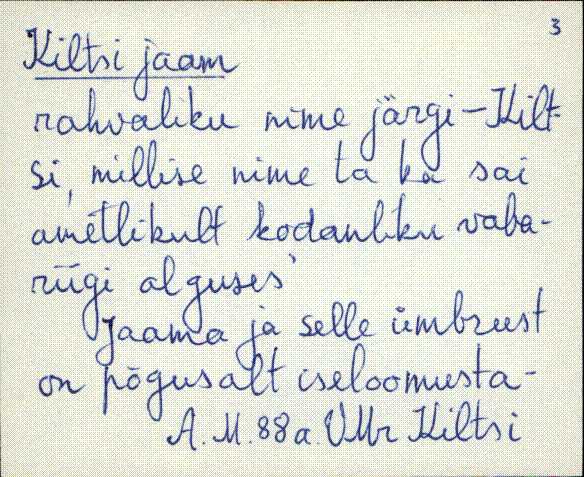 3
Kiltsi jaam
rahvaliku nime järgi - Kilt-
si, millise nime ta ka sai
ametlikult kodanliku vaba-
riigi alguses'
Jaama ja selle ümbrust
on põgusalt iseloomusta-
A. M. 88 a. VMr Kiltsi